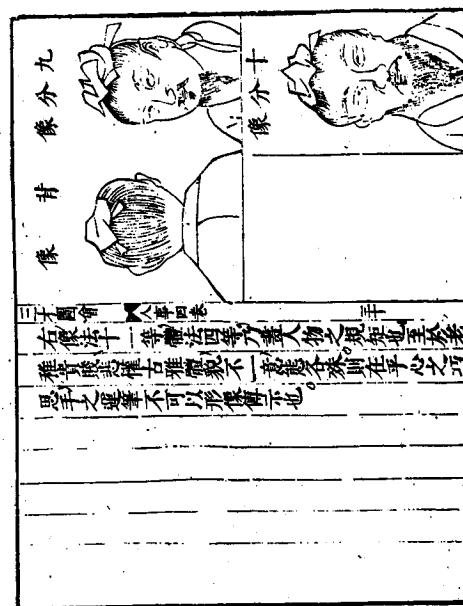 九分像
十分像
背像
三才圖會 人事四卷 三十
右像法十一等體法四等乃畫人物之規矩也至於老
稚貴賤悲懽古雅體貌不一意態各殊則在乎心之巧
思手之運筆不可以形像傳示也。